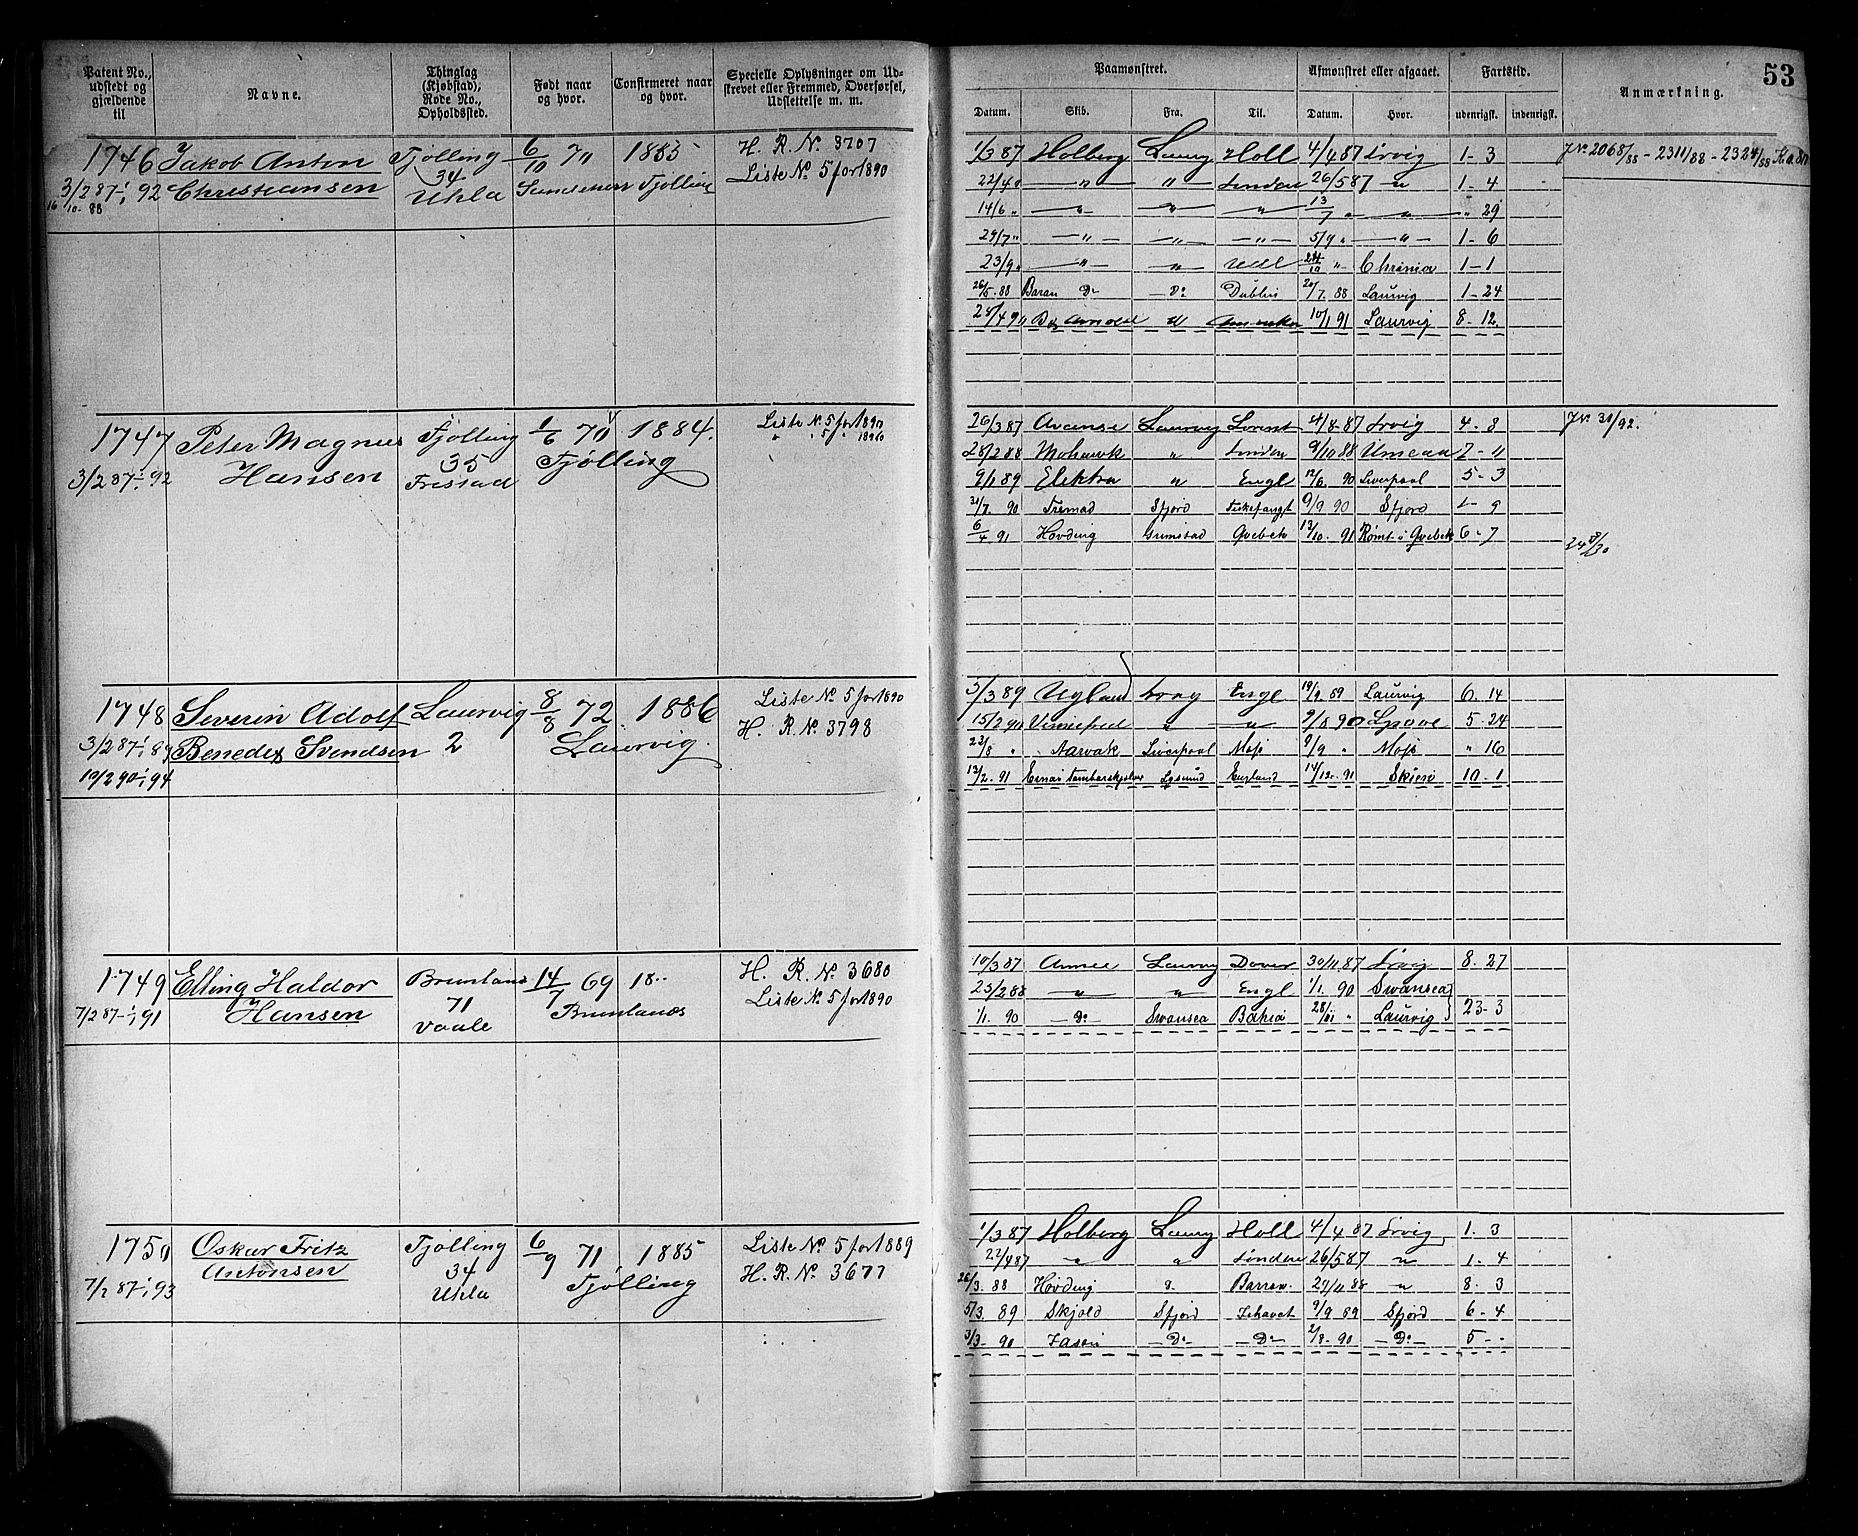 53
Patent No., udstedt og gjældende til
Navne.
Thinglag (Kjøbstad), Rode No., Opholdssted.
Født naar og hvor.
Confirmeret naar og hvor.
Specielle Oplysninger om Udskrevet eller Fremmed, Overførsel, Udslettelse m. m.
Paamønstret.
Afmønstret eller afgaaet.
Fartstid.
Anmærkning.
Datum. Skib. Fra. Til. Datum. Hvor. udenrigsk. indenrigsk.
1746 Jakob Anton Tjølling 6/10 70 1885 H. R. N. 3707
3/2 87-i 92 Christiansen 34 Tjølling Liste No 5 for 1890
16/10-88 Ukla
1/3 87 Holberg Laurv Holl 4/4 87 Lrvig 1-3
22/4 " — " — " London 26/5 87 " 1-4
14/6 " — " — " — " — 13/7 " — " — " 29
29/7 " — " — " — " — 5/9 " — " — 1-6
23/9 " — " — " 24/10 " Chrania 1-1
26/5. 88 Baran Do — Do Dublin 20/7. 88 Laurvig 1-24
10/1 91 Laurvig 8-12
J No. 2068/88 - 2311/88 - 2324/88
1747 Peter Magnus Tjølling 1/6 70 1884. Liste N. 5 for 1890
" " 5 " 1896
3/2 87-i 92 Hansen 35 Tjølling
26/3 87 Avanse Laurvig 4/8-87 Lrvig 4-8
28/2 88 Mohawk " London 9/10 88 Umeaa 7-11
9/1 89 Elektra " Engl 12/6. 90 Liverpool 5-3
31/7. 90 Sfjord Fiskefangst 9/9 90 Sfjord 1-9
6/4 91 Hovding Grimstad Qvebek 13/10. 91 Rømt i Qvebek 6-7
J No. 31/92.
1748 Severin Adolf Laurvig 8/8 72 1886 Liste No 5 for 1890
3/2 87-i 89 Benedix Svendsen 2 Laurvig. H. R. N. 3798
19/2 90-i 94
5/3 89 Ugland Lrvg Engl 19/9. 89 Laurvig 6-14
15/2 90 " — " — 9/8 90 5-24
23/8 " Aarvak Liverpool Moss 9/9 " Moss " 16
12/2. 91 England 14/12. 91 Skien 10-1
1749 Elling Haldor Brunlanes 14/7 69 18.. H. R. N. 3680
7/2 87-i 91 Hansen 71 Brunlanes Liste N. 5 for 1890
Vaale
10/3 87 Laurvig Dover 30/11 87 Lrvig 8-27
25/2 88 — " — " Engl 1/1. 90 Swansea
1/1. 90 — Do — Swansea Bahia 28/11 " Laurvig 23-3
1750 Oskar Fritz Tjølling 6/9 71 1885 Liste No 5 for 1889
7/2 87-i 93 Antonsen 34 Tjølling H. R. No. 3677
Ukla
1/3 87 Holberg Laurv Holl 4/4 87 Lrvig 1-3
22/4 87 " " London 26/5 87 " 1-4
26/3. 88 Hovding Do. 24/11 88 " 8-3
5/3. 89 Skjold Sfjord Ishavet 9/9 89 Sfjord 6-4
3/3. 90 Jason — Do — — Do — 2/8. 90 — Do — 5 - -